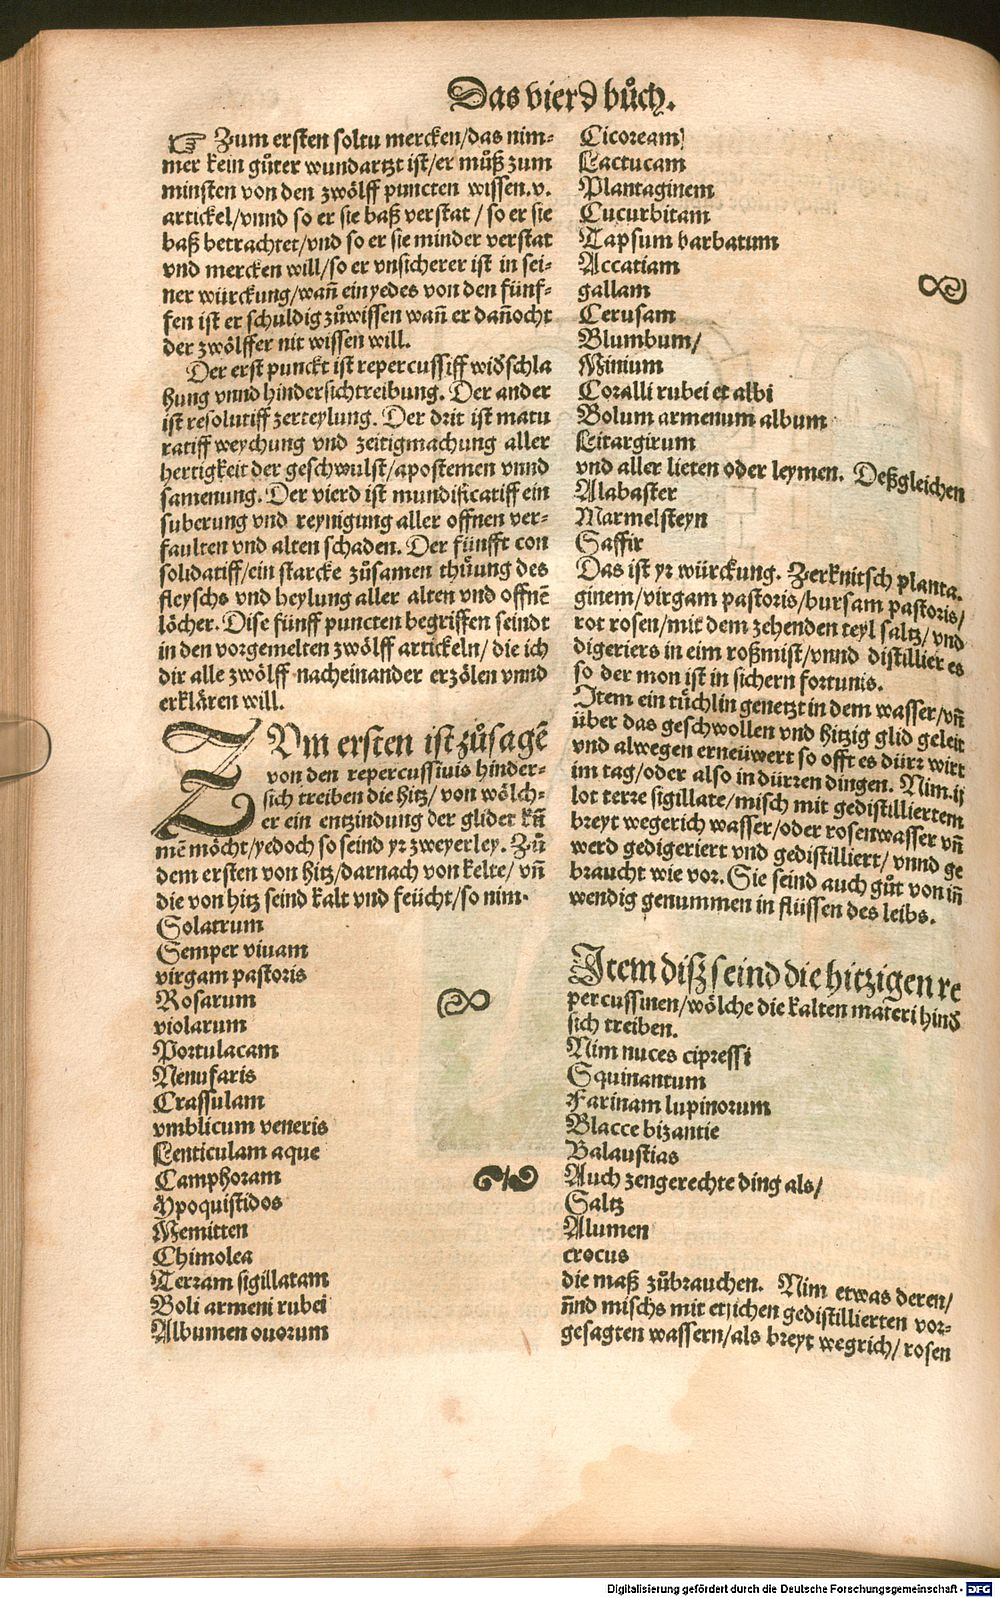 Das vierd bůch.
☞ Zum ersten soltu mercken/das nim-
mer kein gůter wundartzt ist/er můß zum
minsten von den zwölff puncten wissen.v.
artickel/vnnd so er sie baß verstat / so er sie
baß betrachtet/vnd so er sie minder verstat
vnd mercken will/so er vnsicherer ist in sei-
ner würckung/wañ ein yedes von den fünf-
fen ist er schuldig zůwissen wañ er dañocht
der zwölffer nit wissen will.
Der erst punckt ist repercussiff widschla
hung vnnd hindersichtreibung. Der ander
ist resolutiff zerteylung. Der drit ist matu
ratiff weychung vnd zeitigmachung aller
hertigkeit der geschwulst/apostemen vnnd
samenung. Der vierd ist mundificatiff ein
suberung vnd reynigung aller offnen ver-
faulten vnd alten schaden. Der fünfft con
solidatiff/ein starcke zůsamen thůung des
fleyschs vnd heylung aller alten vnd offnē
löcher. Dise fünff puncten begriffen seindt
in den vorgemelten zwölff artickeln/ die ich
dir alle zwölff nacheinander erzölen vnnd
erklären will.
ZVm ersten ist zůsagē
von den repercussiuis hinder-
sich treiben die hitz/ von wölch-
er ein entzindung der glider kū
mē möcht/yedoch so seind yr zweyerley. Zů
dem ersten von hitz/darnach von kelte/ vñ
die von hitz seind kalt vnd feücht/so nim.
Solatrum
Semper viuam
virgam pastoris
Rosarum
violarum
Portulacam
Nenufaris
Crassulam
vmblicum veneris
Lenticulam aque
Camphoram
Ypoquistidos
Memitten
Chimolea
Terram sigillatam
Boli armeni rubei
Albumen ouorum
Cicoream
Lactucam
Plantaginem
Cucurbitam
Tapsum barbatum
Accatiam
gallam
Cerusam
Blumbum/
Minium
Coralli rubei et albi
Bolum armenum album
Litargirum
vnd aller lieten oder leymen. Deßgleichen
Alabaster
Marmelsteyn
Saffir
Das ist yr würckung. Zerknitsch planta-
ginem/virgam pastoris/bursam pastoris/
rot rosen/mit dem zehenden teyl saltz/ vnd
digeriers in eim roßmist/vnnd distillier es
so der mon ist in sichern fortunis.
Item ein tüchlin genetzt in dem wasser/vñ
über das geschwollen vnd hitzig glid geleit
vnd alwegen erneüwert so offt es dürr wirt
im tag/oder also in dürren dingen. Nim.ij
lot terre sigillate/misch mit gedistilliertem
breyt wegerich wasser/oder rosenwasser vñ
werd gedigeriert vnd gedistilliert/ vnnd ge
braucht wie vor. Sie seind auch gůt von iñ
wendig genummen in flüssen des leibs.
Item disz seind die hitzigen re
percussiuen/wölche die kalten materi hind
sich treiben.
Nim nuces cipressi
Squinantum
Farinam lupinorum
Blacce bizantie
Balaustias
Auch zengerechte ding als/
Saltz
Alumen
crocus
die maß zůbrauchen. Nim etwas deren/
ñnd mischs mit etlichen gedistillierten vor-
gesagten wassern/als breyt wegrich/ rosen
Digitalisierung gefördert durch die Deutsche Forschungsgemeinschaft - DFG